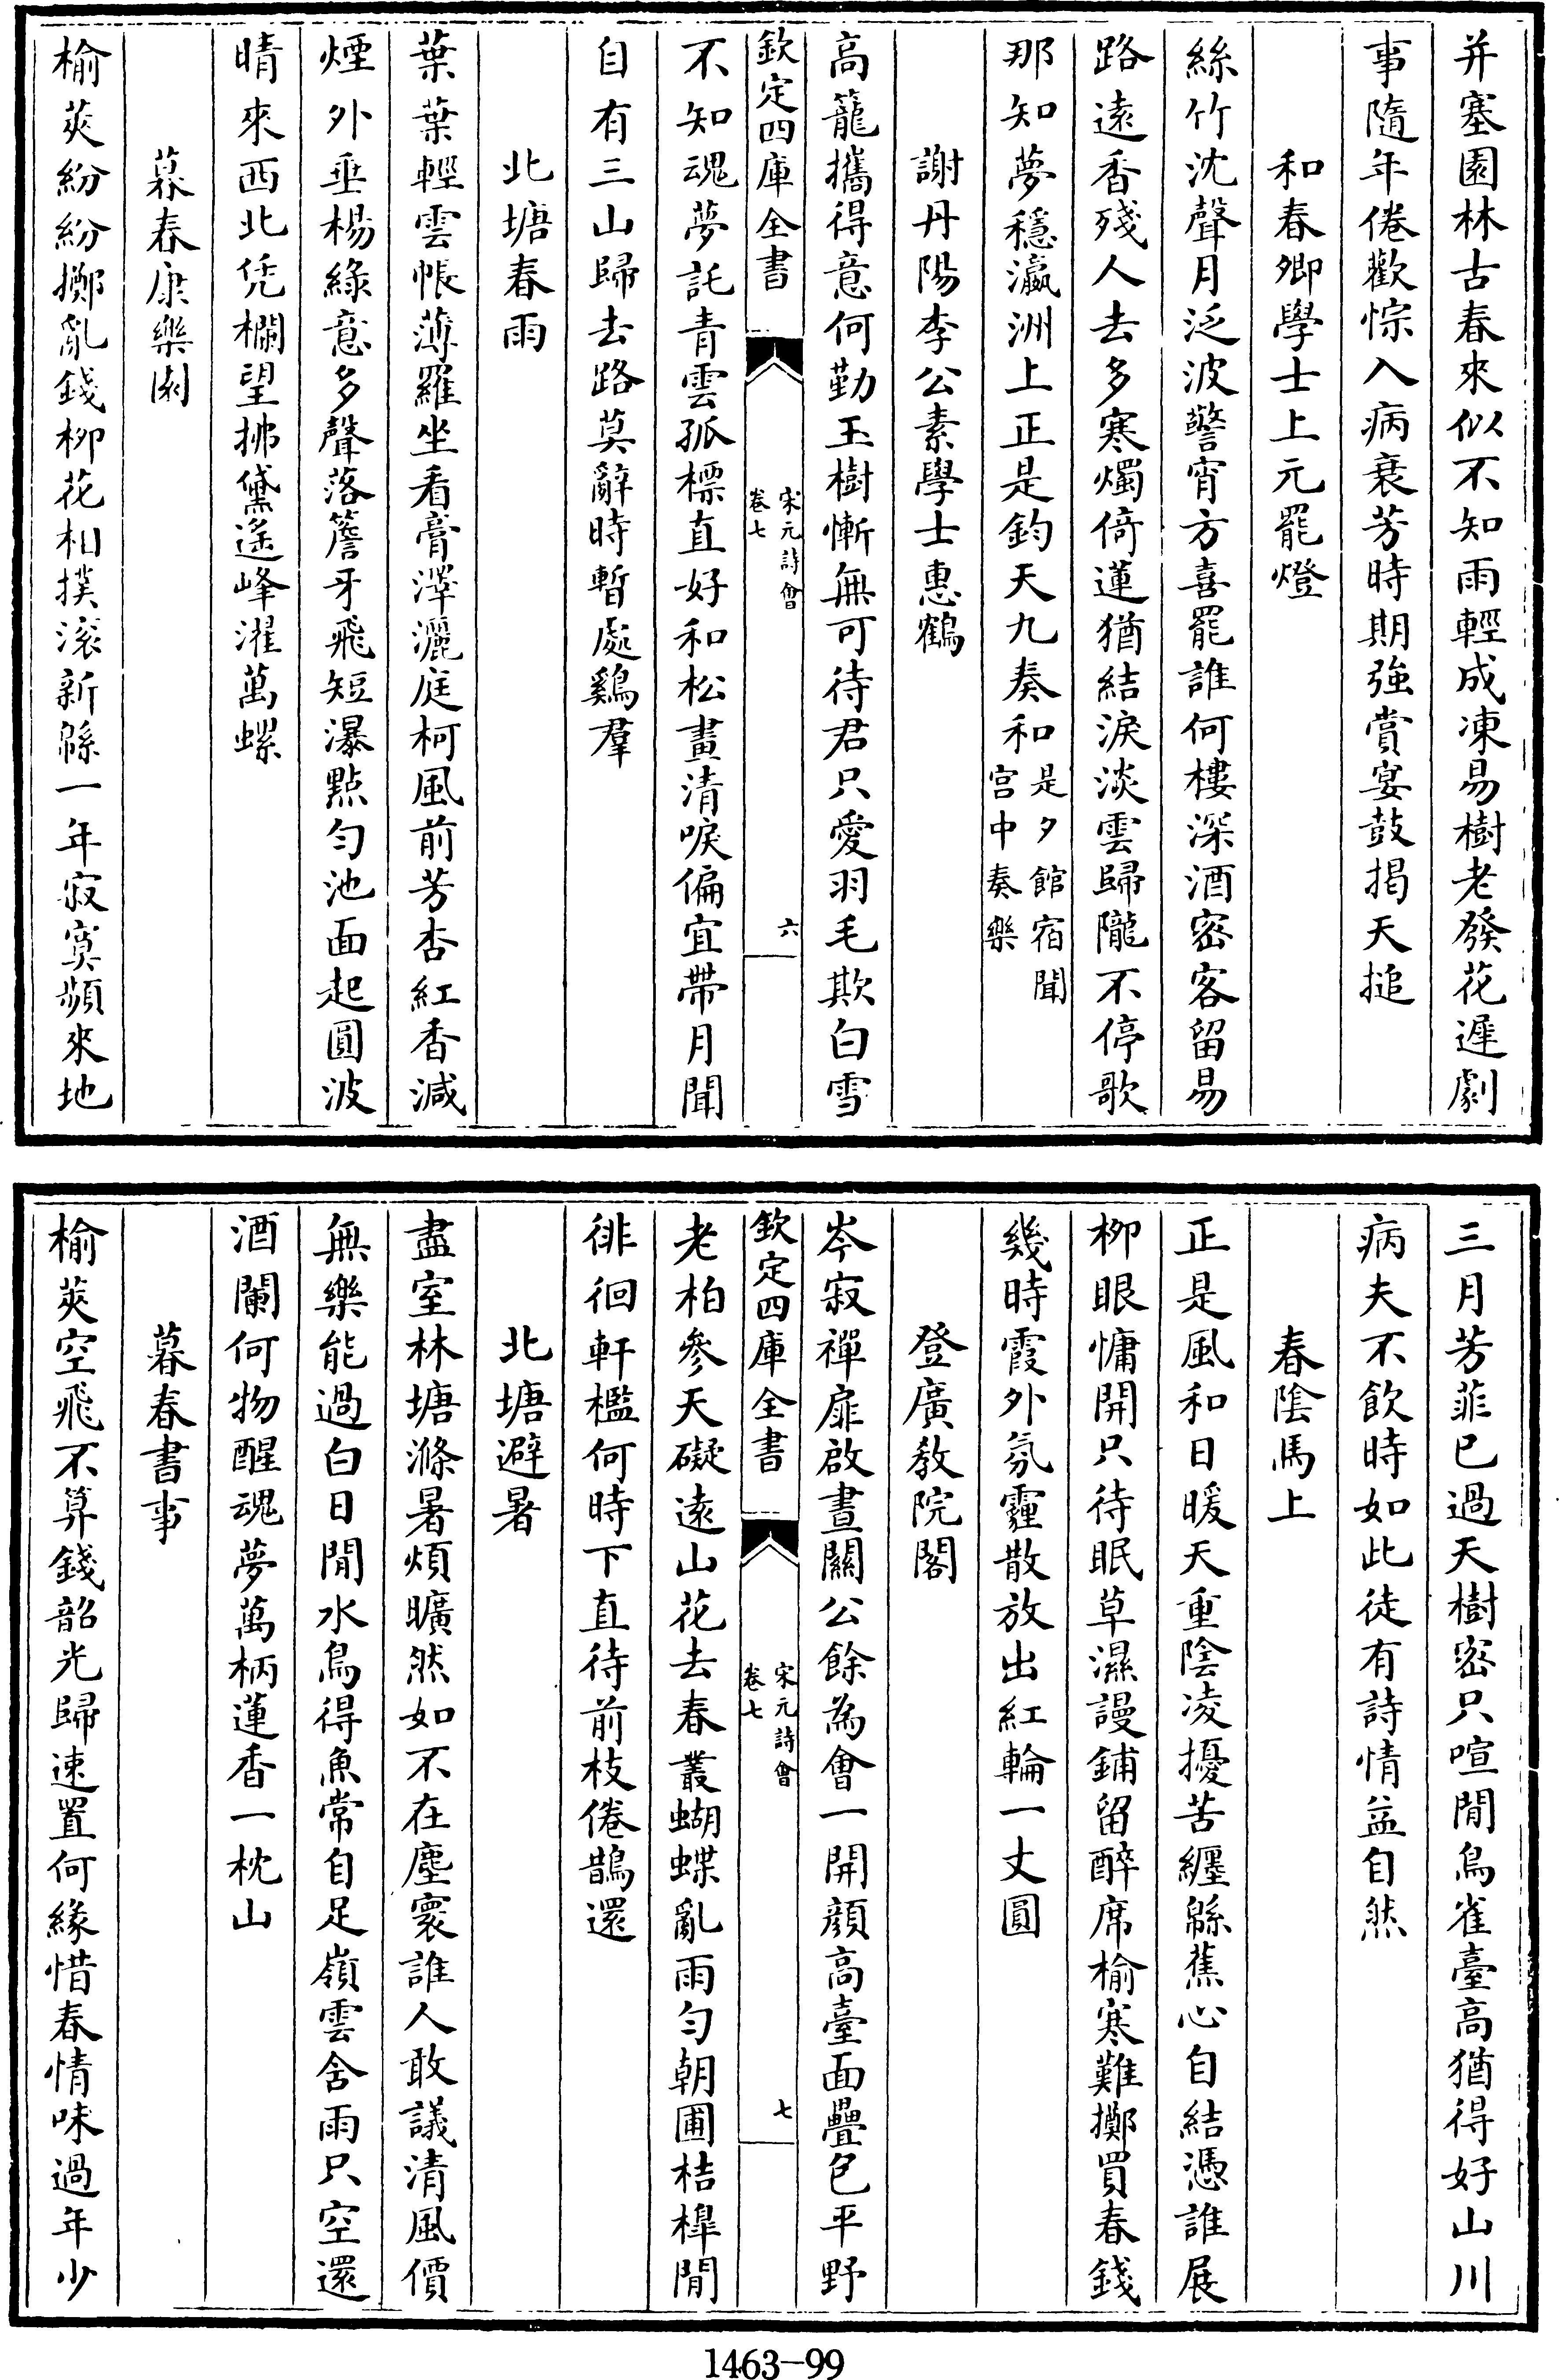 并塞園林古春來似不知雨輕成凍易樹老發花遲劇
事隨年倦歡悰入病衰芳時期強賞宴鼓揭天搥
和春卿學士上元罷燈
絲竹沈聲月泛波警宵方喜罷誰何樓深酒密客留易
路遠香殘人去多寒燭倚蓮猶結淚淡雲歸隴不停歌
那知夢穩瀛洲上正是鈞天九奏和是夕館宿聞宫中奏樂
謝丹陽李公素學士惠鶴
高籠攜得意何勤玉樹慚無可待君只愛羽毛欺白雪
欽定四庫全書 宋元詩會 卷七 六
不知魂夢託青雲孤標直好和松畫清唳偏宜帶月聞
自有三山歸去路莫辭時暫處鷄羣
北塘春雨
葉葉輕雲帳薄羅坐看膏澤灑庭柯風前芳杏紅香減
煙外垂楊綠意多聲落簷牙飛短瀑點勻池面起圓波
晴來西北凭欄望拂黛遙峰濯萬螺
暮春康樂園
榆莢紛紛擲亂錢柳花相撲滚新緜一年寂寞頻來地
三月芳菲已過天樹密只喧閒鳥雀臺高猶得好山川
病夫不飲時如此徒有詩情益自然
春陰馬上
正是風和日暖天重陰凌擾苦纏緜蕉心自結憑誰展
柳眼慵開只待眠草濕謾鋪留醉席榆寒難擲買春錢
幾時霞外氛霾散放出紅輪一丈圓
登廣教院閣
岑寂禪扉啟晝關公餘為會一開顏高臺面疊包平野
欽定四庫全書 宋元詩會 卷七 七
老柏參天礙遠山花去春叢蝴蝶亂雨勻朝圃桔槔閒
徘徊軒檻何時下直待前枝倦鵲還
北塘避暑
盡室林塘滌暑煩曠然如不在塵寰誰人敢議清風價
無樂能過白日閒水鳥得魚常自足嶺雲含雨只空還
酒闌何物醒魂夢萬柄蓮香一枕山
暮春書事
榆莢空飛不算錢韶光歸速置何緣惜春情味過年少
1463-99